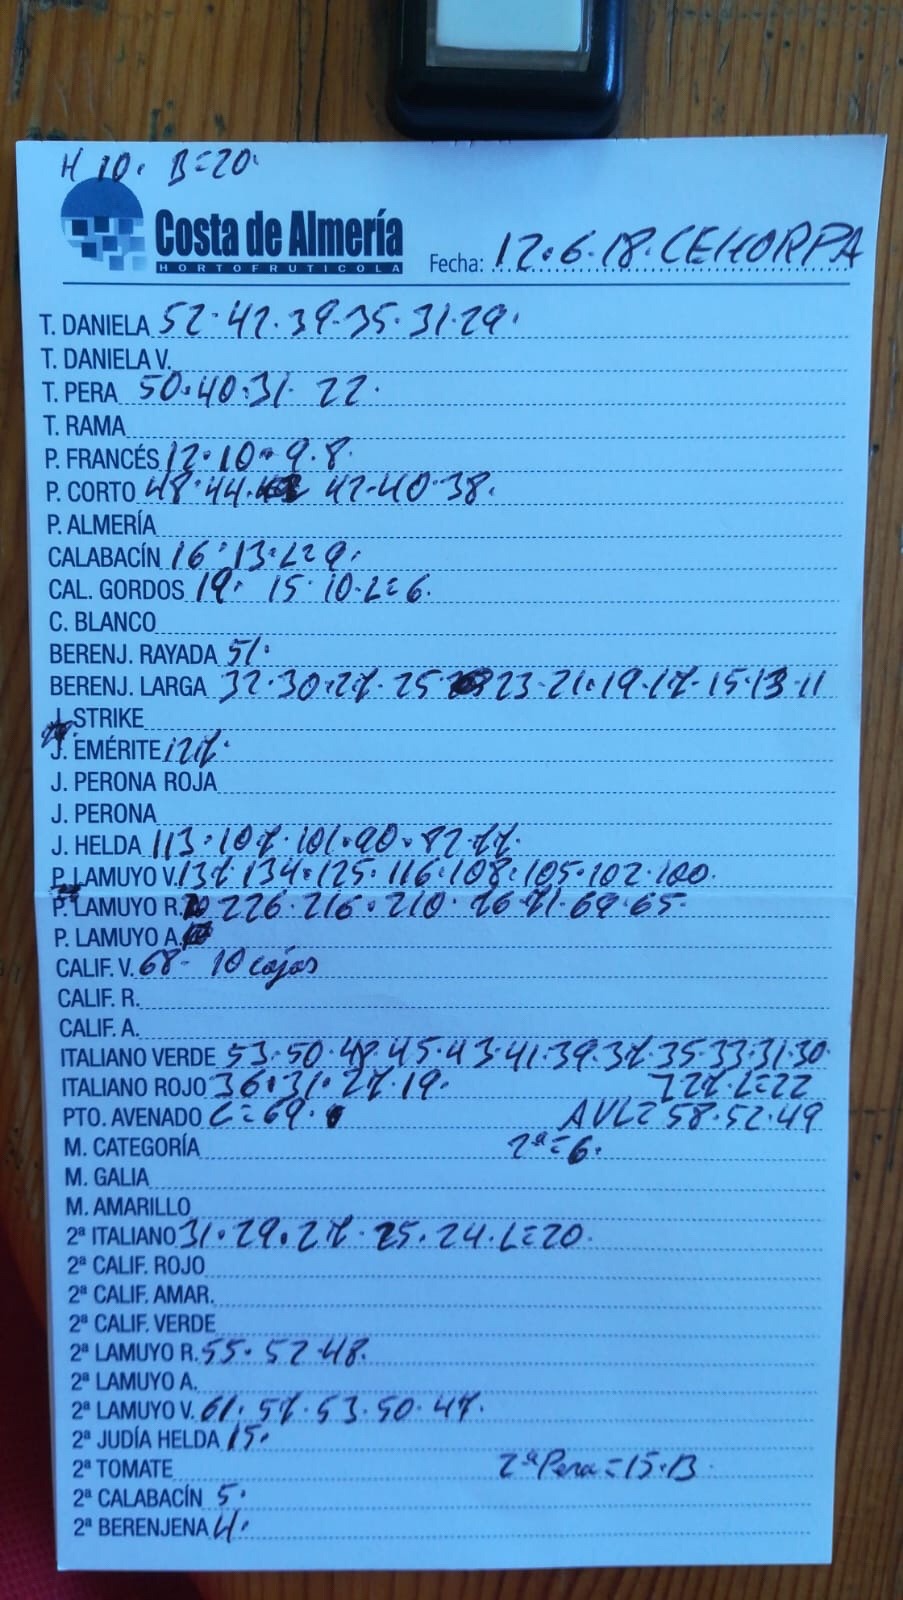 H 10. B=20.
Costa de Almería
HORTOFRUTICOLA
Fecha: 12.6.18. CEHORPA
T. DANIELA 52.42.39.35.31.29.
T. DANIELA V.
T. PERA 50.40.31. 22.
T. RAMA
P. FRANCÉS 12.10.9.8.
P. CORTO 48.44. 42.40.38.
P. ALMERÍA
CALABACÍN 16.13.L=9.
CAL. GORDOS 19. 15.10.L=6.
C. BLANCO
BERENJ. RAYADA 51.
BERENJ. LARGA 32.30.27.25 23.21.19.17.15.13.11
J. STRIKE
J. EMÉRITE 127.
J. PERONA ROJA
J. PERONA
J. HELDA 113.107.101.90.82.77.
P. LAMUYO V. 137.134.125.116.108.105.102.100.
P. LAMUYO R. 226.216.210. 76.71.69.65.
P. LAMUYO A.
CALIF. V. 68- 10 cajas
CALIF. R.
CALIF. A.
ITALIANO VERDE 53.50.48.45.43.41.39.37.35.33.31.30.
ITALIANO ROJO 36.31.27.19. 27.L=22
PTO. AVENADO C=69. AVL=58.52.49
M. CATEGORÍA 2ª=6.
M. GALIA
M. AMARILLO
2ª ITALIANO 31.29.27.25.24.L=20.
2ª CALIF. ROJO
2ª CALIF. AMAR.
2ª CALIF. VERDE
2ª LAMUYO R. 55.52.48.
2ª LAMUYO A.
2ª LAMUYO V. 61.57.53.50.47.
2ª JUDÍA HELDA 15.
2ª TOMATE 2ª Pera=15.13.
2ª CALABACÍN 5.
2ª BERENJENA 4.